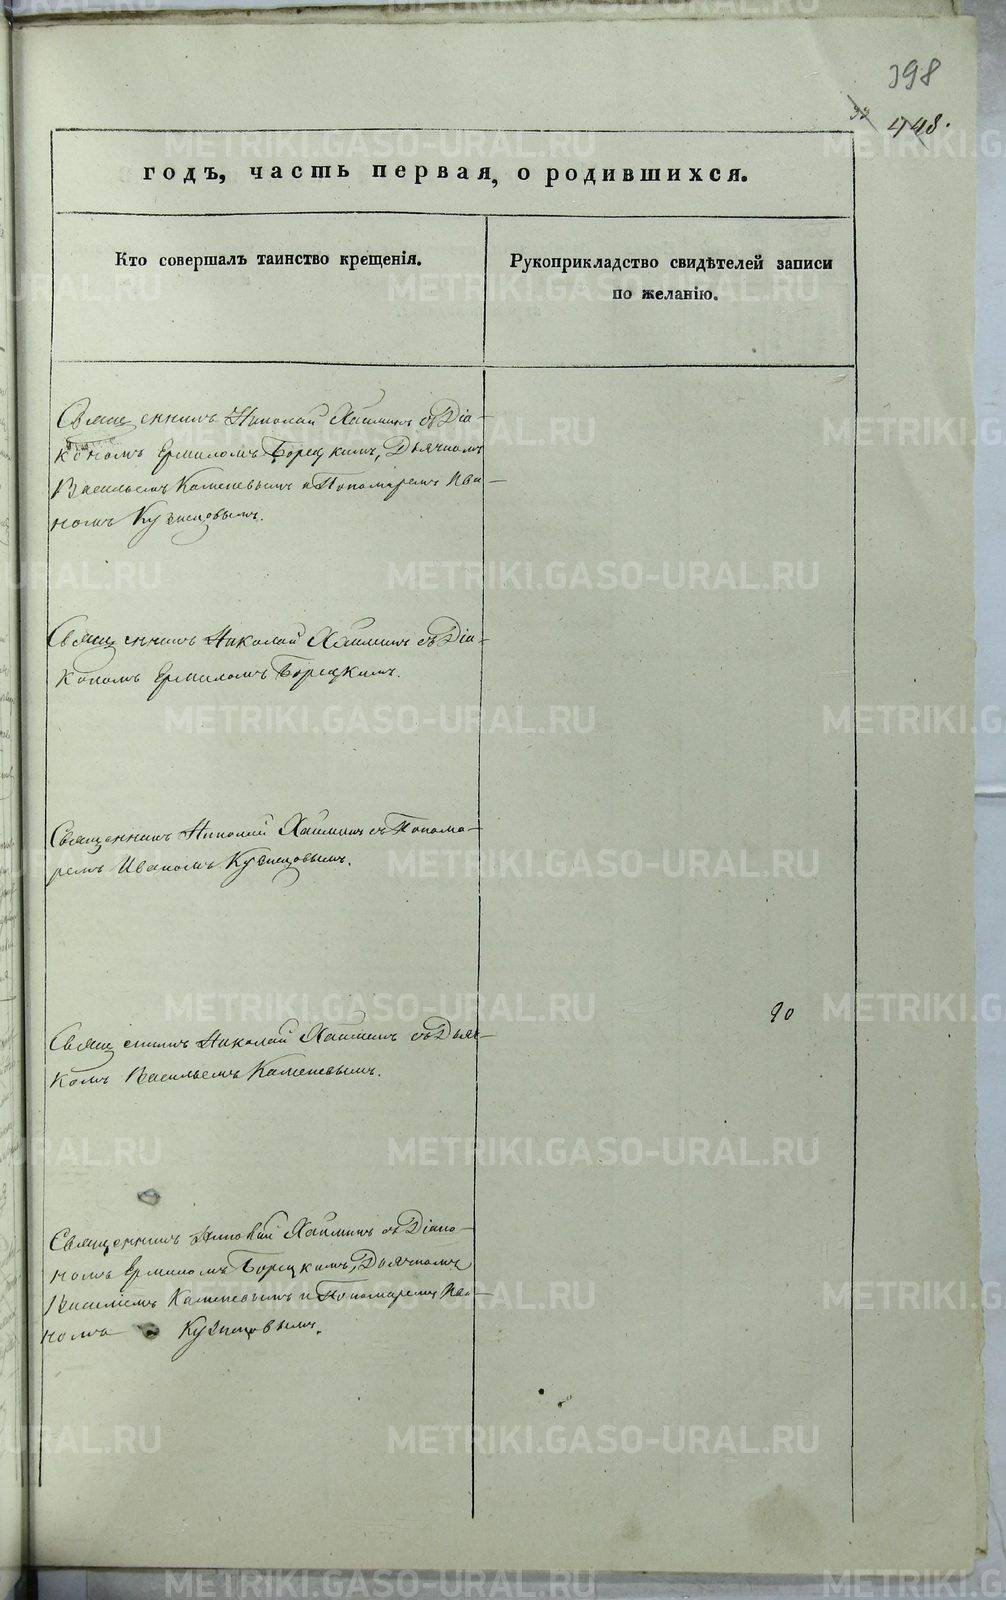 398
99 448.
годъ, часть первая, о родившихся.
Кто совершалъ таинство крещенія.
Рукоприкладство свидѣтелей записи
по желанію.
Священникъ Николай Хаминъ съ Діа-
кономъ Ермиломъ Борецкимъ, Дьячкомъ
Васильемъ Каменевымъ и Пономаремъ Ива-
номъ Кузнецовымъ.
Священникъ Николай Хаминъ съ Діа-
кономъ Ермиломъ Борецкимъ.
Священникъ Николай Хаминъ съ Понома-
ремъ Иваномъ Кузнецовымъ.
90
Священникъ Николай Хаминъ съ Дьяч-
комъ Васильемъ Каменевымъ.
Священникъ Николай Хаминъ съ Діако-
номъ Ермиломъ Борецкимъ, Дьячкомъ
Василіемъ Каменевымъ и Пономаремъ Ива-
номъ Кузнецовымъ.
METRIKI.GASO-URAL.RU